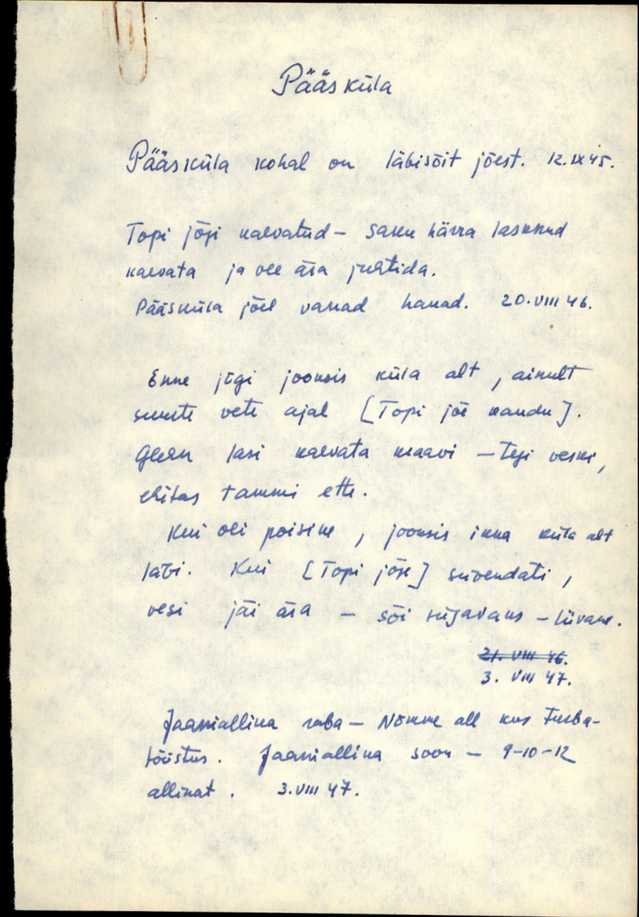 Pääsküla
Pääsküla kohal on läbisõit jõest. 12.IX 45.
Topi jõgi kaevatud – Saku härra lasknud
kaevata ja vee ära juhtida.
Pääsküla jõel vanad hauad. 20.VIII 46.
Enne jõgi jooksis küla alt, ainult
suurte vete ajal [Topi jõe kaudu].
Glehn lasi kaevata kraavi – tegi veski,
ehitas tammi ette.
Kui oli poisike, jooksis ikka küla alt
läbi. Kui [Topi jõge] süvendati,
vesi jäi ära – sõi sügavaks – liivane.
21. VIII 46.
3. VIII 47.
Jaaniallika raba – Nõmme all kus Turba-
tööstus. Jaaniallika soon – 9-10-12
allikat. 3.VIII 47.